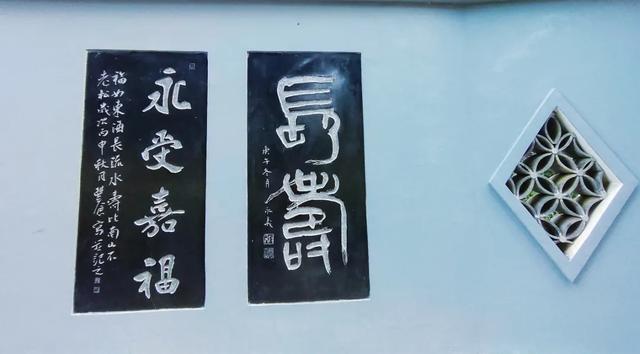 長壽
庚午冬月
永受嘉福
福如東海長流水壽比南山不
老松歲次丙申秋月